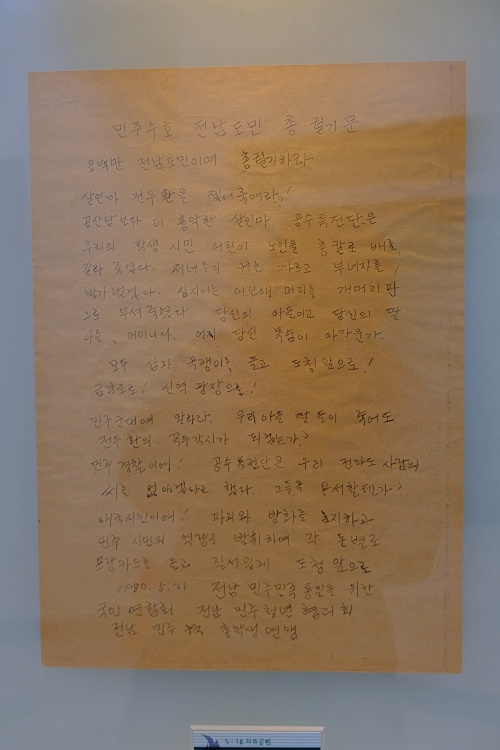 민주수호 전남도민 총 궐기문
오백만 전남도민이여 총궐기하라
살인마 전두환을 찢어죽여라!
공산당보다 더 흉악한 살인마 공수특전단은
우리의 학생 시민 어린이 노인을 총칼로 배를
갈라 죽였다. 처녀들의 귀를 자르고 부녀자를
발가벗겼다. 심지어는 어린애 머리를 개머리판
으로 부셔죽였다. 당신의 아들이고 당신의 딸
아들, 어머니다. 어찌 당신 목숨이 아까운가.
모두 삽과 곡괭이를 들고 도청앞으로!
금남로로! 신역 광장으로!
민주군대여 말하라. 우리아들 딸들이 죽어도
전두환의 꼭두각시가 되겠는가?
민주 경찰이여! 공수특전단은 우리 전라도 사람의
씨를 없애겠다고 했다. 그들을 용서할텐가?
애국시민이여! 파괴와 방화를 중지하고
민주 시민의 역량을 발휘하여 각 동별로
프랑카드를 들고 질서있게 도청앞으로
1980.5.21 전남 민주민족통일을 위한
국민 연합회. 전남 민주청년 협의회
전남 민주 총학생 연맹
5·18 자유공원